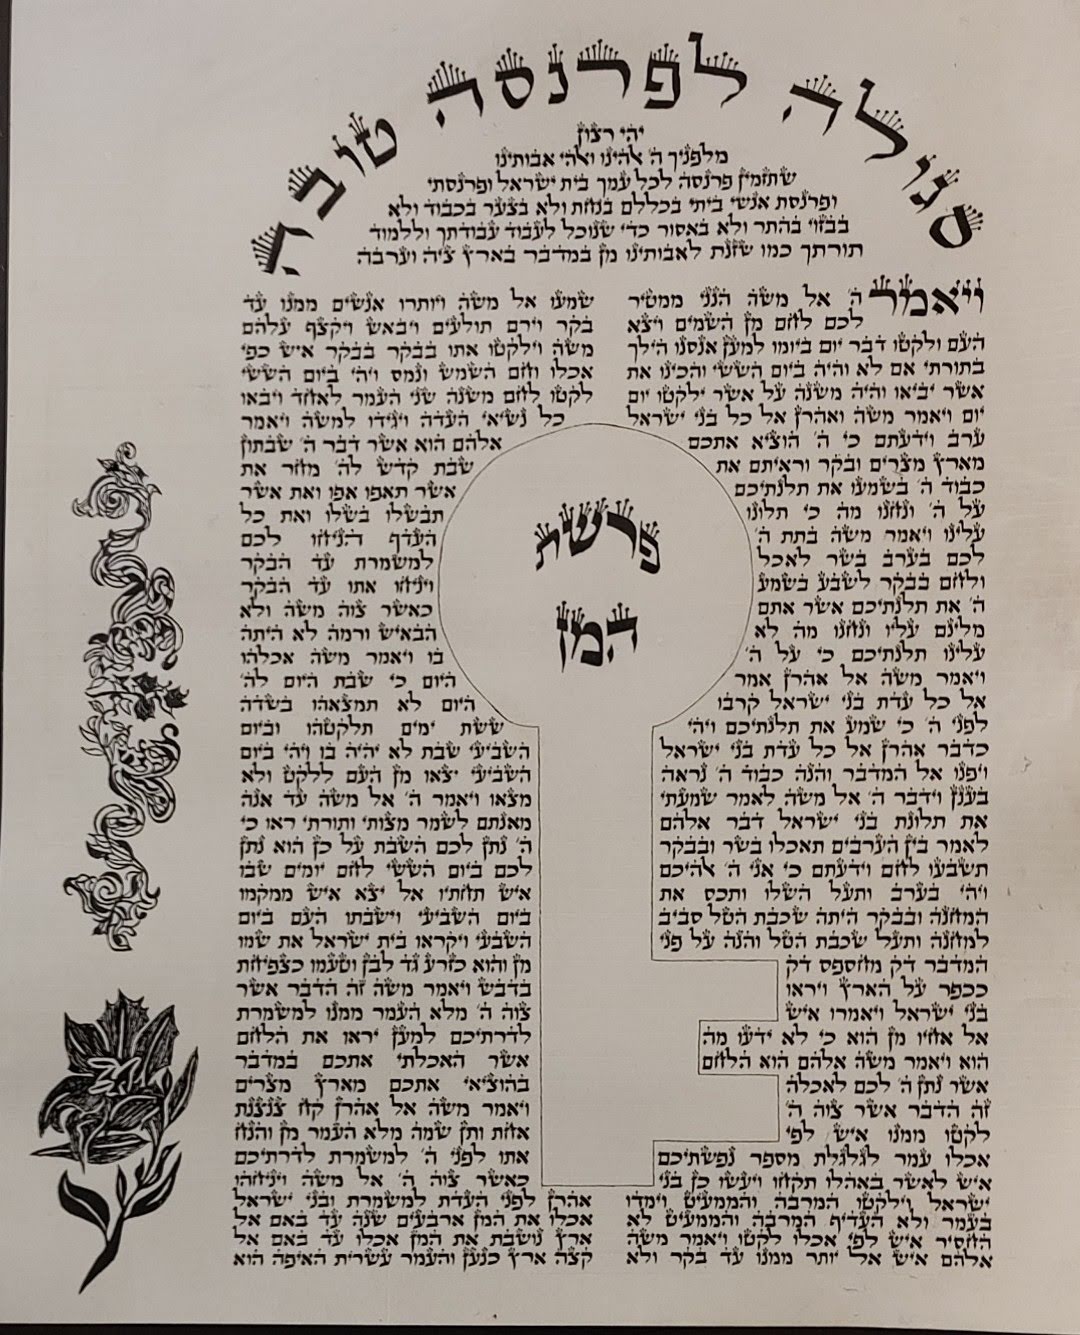 סגולה לפרנסה טובה
יהי רצון
מלפניך ה' אלהינו ואלהי אבותינו
שתזמין פרנסה לכל עמך בית ישראל ופרנסתי
ופרנסת אנשי ביתי בכללם בנחת ולא בצער בכבוד ולא
בבזוי בהתר ולא באסור כדי שנוכל לעבוד עבודתך וללמוד
תורתך כמו שזנת לאבותינו מן במדבר בארץ ציה וערבה
ויאמר ה' אל משה הנני ממטיר
לכם לחם מן השמים ויצא
העם ולקטו דבר יום ביומו למען אנסנו הילך
בתורתי אם לא והיה ביום הששי והכינו את
אשר יביאו והיה משנה על אשר ילקטו יום
יום ויאמר משה ואהרן אל כל בני ישראל
ערב וידעתם כי ה' הוציא אתכם
מארץ מצרים ובקר וראיתם את
כבוד ה' בשמעו את תלנתיכם
על ה' ונחנו מה כי תלונו
עלינו ויאמר משה בתת ה'
לכם בערב בשר לאכל
ולחם בבקר לשבע בשמע
ה' את תלנתיכם אשר אתם
מלינם עליו ונחנו מה לא
עלינו תלנתיכם כי על ה'
ויאמר משה אל אהרן אמר
אל כל עדת בני ישראל קרבו
לפני ה' כי שמע את תלנתיכם ויהי
כדבר אהרן אל כל עדת בני ישראל
ויפנו אל המדבר והנה כבוד ה' נראה
בענן וידבר ה' אל משה לאמר שמעתי
את תלונת בני ישראל דבר אלהם
לאמר בין הערבים תאכלו בשר ובבקר
תשבעו לחם וידעתם כי אני ה' אלהיכם
ויהי בערב ותעל השלו ותכס את
המחנה ובבקר היתה שכבת הטל סביב
למחנה ותעל שכבת הטל והנה על פני
המדבר דק מחספס דק
ככפר על הארץ ויראו
בני ישראל ויאמרו איש
אל אחיו מן הוא כי לא ידעו מה
הוא ויאמר משה אלהם הוא הלחם
אשר נתן ה' לכם לאכלה
זה הדבר אשר צוה ה'
לקטו ממנו איש לפי
אכלו עמר לגלגלת מספר נפשתיכם
איש לאשר באהלו תקחו ויעשו כן בני
ישראל וילקטו המרבה והממעיט וימדו
בעמר ולא העדיף המרבה והממעיט לא
החסיר איש לפי אכלו לקטו ויאמר משה
אלהם איש אל יותר ממנו עד בקר ולא
שמעו אל משה ויותרו אנשים ממנו עד
בקר וירם תולעים ויבאש ויקצף עלהם
משה וילקטו אתו בבקר בבקר איש כפי
אכלו וחם השמש ונמס ויהי ביום הששי
לקטו לחם משנה שני העמר לאחד ויבאו
כל נשיאי העדה ויגידו למשה ויאמר
אלהם הוא אשר דבר ה' שבתון
שבת קדש לה' מחר את
אשר תאפו אפו ואת אשר
תבשלו בשלו ואת כל
העדף הניחו לכם
למשמרת עד הבקר
ויניחו אתו עד הבקר
כאשר צוה משה ולא
הבאיש ורמה לא היתה
בו ויאמר משה אכלהו
היום כי שבת היום לה'
היום לא תמצאהו בשדה
ששת ימים תלקטהו וביום
השביעי שבת לא יהיה בו ויהי ביום
השביעי יצאו מן העם ללקט ולא
מצאו ויאמר ה' אל משה עד אנה
מאנתם לשמר מצותי ותורתי ראו כי
ה' נתן לכם השבת על כן הוא נתן
לכם ביום הששי לחם יומים שבו
איש תחתיו אל יצא איש ממקמו
ביום השביעי וישבתו העם ביום
השבעי ויקראו בית ישראל את שמו
מן והוא כזרע גד לבן וטעמו כצפיחת
בדבש ויאמר משה זה הדבר אשר
צוה ה' מלא העמר ממנו למשמרת
לדרתיכם למען יראו את הלחם
אשר האכלתי אתכם במדבר
בהוציאי אתכם מארץ מצרים
ויאמר משה אל אהרן קח צנצנת
אחת ותן שמה מלא העמר מן והנח
אתו לפני ה' למשמרת לדרתיכם
כאשר צוה ה' אל משה ויניחהו
אהרן לפני העדת למשמרת ובני ישראל
אכלו את המן ארבעים שנה עד באם אל
ארץ נושבת את המן אכלו עד באם אל
קצה ארץ כנען והעמר עשרית האיפה הוא
פרשת
המן